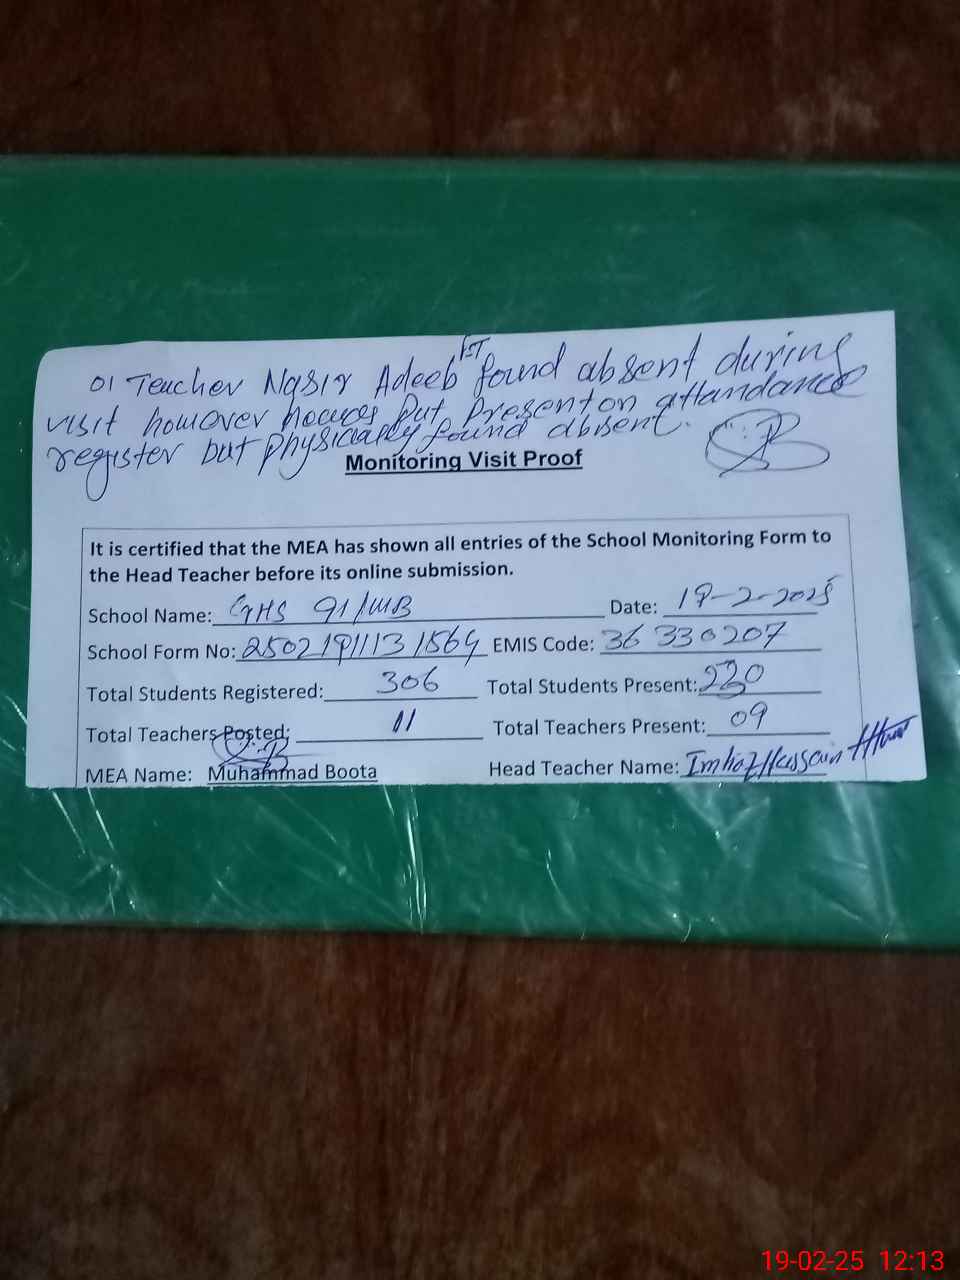 EST
01 Teacher Nasir Adeeb found absent during
visit however he was put present on attandance
register but physically found absent.
Monitoring Visit Proof
It is certified that the MEA has shown all entries of the School Monitoring Form to
the Head Teacher before its online submission.
School Name: GHS 91/WB Date: 19-2-2025
School Form No: 2502191131564 EMIS Code: 36330207
Total Students Registered: 306 Total Students Present: 220
Total Teachers Posted: 11 Total Teachers Present: 09
MEA Name: Muhammad Boota Head Teacher Name: Imtiaz Hussain
19-02-25 12:13